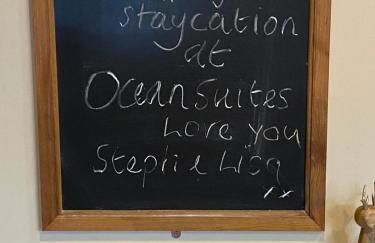 staycation
at
Ocean Suites
Love you
Stephie Lisa
xx